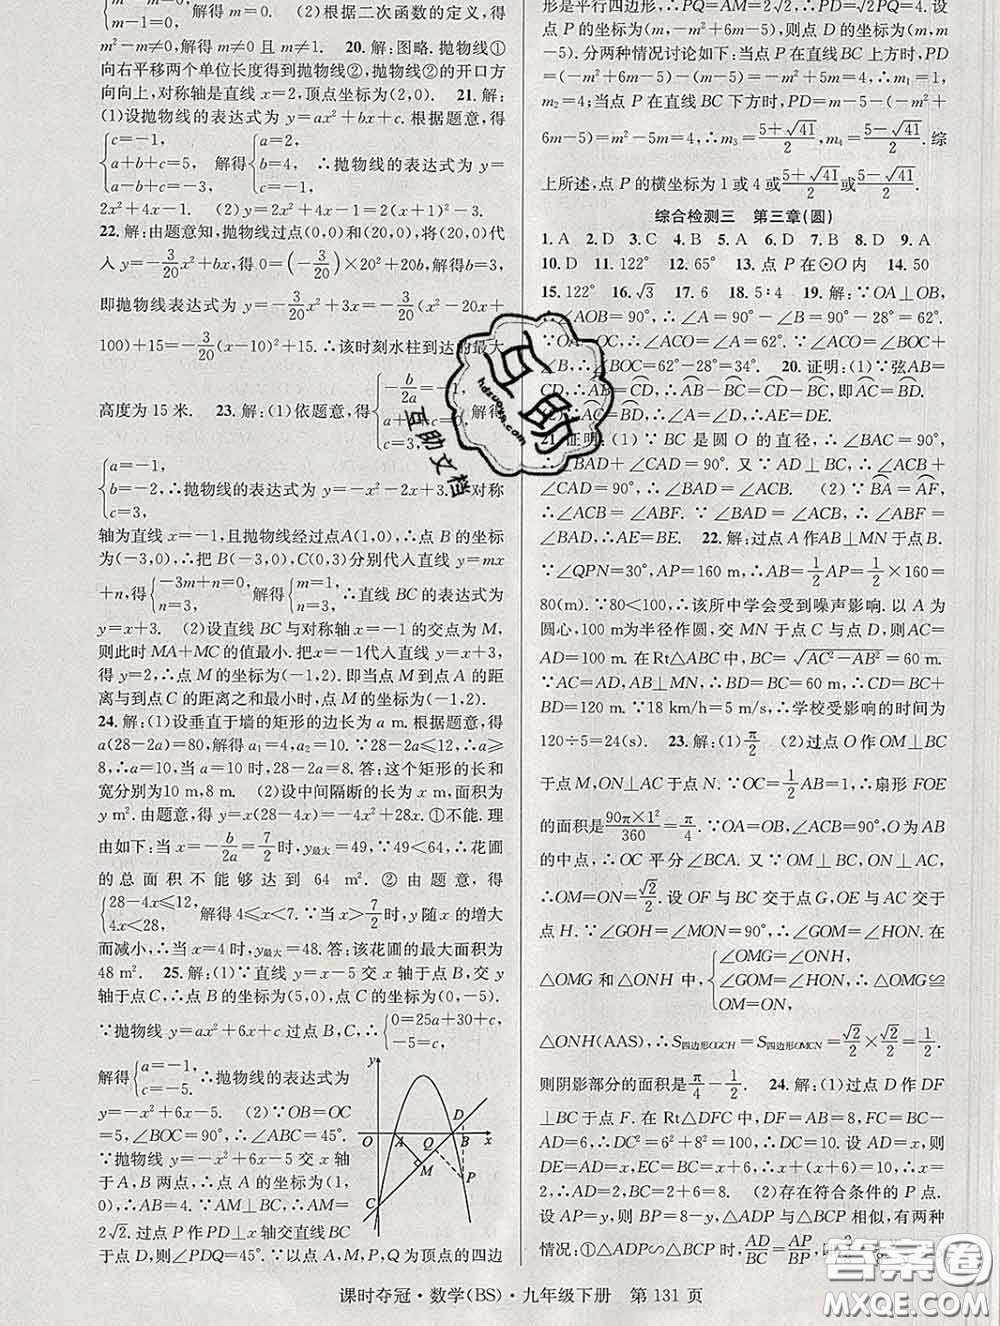 m-1=0, 解得 m=0. (2)根据二次函数的定义,得
m²-m≠0,解得 m≠0 且 m≠1. 20. 解:图略. 抛物线①
向右平移两个单位长度得到抛物线②,抛物线②的开口方
向向上,对称轴是直线 x=2,顶点坐标为(2,0). 21. 解:
(1)设抛物线的表达式为 y=ax²+bx+c. 根据题意,得
{c=-1, a+b+c=5, a-b+c=-3, 解得{a=2, b=4, c=-1, ∴抛物线的表达式为 y=
2x²+4x-1. (2)(-1,-3)
22. 解:由题意知,抛物线过点(0,0)和(20,0),将(20,0)代
入 y=-3/20x²+bx,得 0=(-3/20)×20²+20b,解得 b=3,
即抛物线表达式为 y=-3/20x²+3x=-3/20(x²-20x+
100)+15=-3/20(x-10)²+15. ∴该时刻水柱到达的最大
高度为 15 米. 23. 解:(1)依题意,得{-b/2a=-1, a+b+c=0, c=3, 解得
{a=-1, b=-2, c=3, ∴抛物线的表达式为 y=-x²-2x+3. ∵对称
轴为直线 x=-1,且抛物线经过点A(1,0),∴点 B 的坐标
为(-3,0),∴把 B(-3,0),C(0,3)分别代入直线 y=mx
+n,得{-3m+n=0, n=3, 解得{m=1, n=3, ∴直线 BC 的表达式为
y=x+3. (2)设直线 BC 与对称轴 x=-1 的交点为 M,
则此时 MA+MC 的值最小. 把 x=-1代入直线 y=x+3,
得 y=2,∴点 M 的坐标为(-1,2). 即当点 M 到点 A 的
距离与到点 C 的距离之和最小时,点 M 的坐标为(-1,2).
24. 解:(1)设垂直于墙的矩形的边长为 a m. 根据题意,得
a(28-2a)=80,解得 a₁=4,a₂=10. ∵28-2a≤12,∴a≥
8,∴a=10,∴28-2a=8. 答:这个矩形的长和
宽分别为10 m,8 m. (2)设中间隔断的长为 x m,面积为
y m². 由题意,得 y=x(28-4x)=-4x²+28x. ①不能. 理
由如下:当 x=-b/2a=7/2 时,y最大=49,∵49<64,∴花圃
的总面积不能够达到 64 m². ② 由题意,得
{28-4x≤12, 4x<28, 解得 4≤x<7. ∵当 x>7/2时,y 随 x 的增大
而减小,∴当 x=4 时,y最大=48. 答:该花圃的最大面积为
48 m². 25. 解:(1)∵直线 y=x-5 交 x 轴于点 B,交 y
轴于点 C,∴点 B 的坐标为(5,0),点 C 的坐标为(0,-5).
∵抛物线 y=ax²+6x+c 过点 B,C,∴{0=25a+30+c, -5=c,
解得{a=-1, c=-5. ∴抛物线的表达式为
y=-x²+6x-5. (2)∵OB=OC
=5,∠BOC=90°,∴∠ABC=45°.
∵抛物线 y=-x²+6x-5 交 x 轴
于 A,B 两点,∴点 A 的坐标为
(1,0),∴AB=4. ∵AM⊥BC,∴AM=
2√2. 过点 P 作 PD⊥x 轴交直线 BC
于点 D,则∠PDQ=45°. ∵以点 A,M,P,Q 为顶点的四边
y
D
O
A
Q
B
x
M
P
C
形是平行四边形,∴PQ=AM=2√2,∴PD=4. 设
点 P 的坐标为(m,-m²+6m-5),则点 D 的坐标为(m,m
-5). 分两种情况讨论如下:当点 P 在直线 BC 上方时,PD
=(-m²+6m-5)-(m-5)=-m²+5m=4,∴m₁=1,
m₂=4;当点 P 在直线 BC 下方时,PD=m-5-(-m²+
6m-5)=m²-5m=4,∴m₃=(5+√41)/2,m₄=(5-√41)/2. 综
上所述,点 P 的横坐标为 1 或 4 或(5+√41)/2或(5-√41)/2.
综合检测三 第三章(圆)
1. A 2. D 3. C 4. B 5. A 6. D 7. B 8. D 9. A
10. D 11. 122° 12. 65° 13. 点 P 在⊙O 内 14. 50
15. 122° 16. √3 17. 6 18. 5∶4 19. 解:∵OA⊥OB,
∴∠AOB=90°. ∴∠A=90°-∠B=90°-28°=62°.
∵OA=OC,∴∠ACO=∠A=62°. ∵∠ACO=∠BOC+
∠B,∴∠BOC=62°-28°=34°. 20. 证明:(1)∵弦AB=
CD,∴AB=CD,∴AB-BC=CD-BC,即AC=BD.
(2)∵AC=BD,∴∠A=∠D,∴AE=DE.
21. 证明:(1)∵BC 是圆 O 的直径,∴∠BAC=90°,
∴∠BAD+∠CAD=90°. 又∵AD⊥BC,∴∠ACB+
∠CAD=90°. ∴∠BAD=∠ACB. (2)∵BA=AF,
∴∠ACB=∠ABF. ∵∠BAD=∠ACB,∴∠ABF=
∠BAD,∴AE=BE. 22. 解:过点 A作AB⊥MN于点B.
∵∠QPN=30°,∠ABP=90°,∴AB=1/2AP=1/2×160=
80(m). ∵80<100,∴该所中学会受到噪声影响. 以 A 为
圆心,100 m为半径作圆,交 MN 于点 C 与点 D,则AC=
AD=100 m. 在 Rt△ABC 中,BC=√(AC²-AB²)=60 m.
∵AC=AD,AB⊥MN,∴BD=BC=60 m,∴CD=BC+
BD=120 m. ∵18 km/h=5 m/s,∴学校受影响的时间为
120÷5=24(s). 23. 解:(1)π/2 (2)过点 O作 OM⊥BC
于点 M,ON⊥AC 于点 N. ∵OC=1/2AB=1,∴扇形 FOE
的面积是(90π×1²)/360=π/4. ∵OA=OB,∠ACB=90°,O 为 AB
的中点,∴OC 平分∠BCA. 又∵OM⊥BC,ON⊥AC,
∴OM=ON=√2/2. 设 OF 与 BC 交于点 G,OE 与 AC 交于
点 H. ∵∠GOH=∠MON=90°,∴∠GOM=∠HON. 在
△OMG 和△ONH 中,{∠OMG=∠ONH, ∠GOM=∠HON, OM=ON, ∴△OMG≌
△ONH(AAS),∴S四边形OGCH=S四边形OMCN=√2/2×√2/2=1/2,
则阴影部分的面积是π/4-1/2. 24. 解:(1)过点 D 作 DF
⊥BC 于点 F. 在 Rt△DFC 中,DF=AB=8,FC=BC
-AD=6,∴DC²=6²+8²=100,即DC=10. 设 AD=x,则
DE=AD=x,EC=BC=x+6,∴x+(x+6)=10,∴x=
2,∴AD=2,BC=2+6=8. (2)存在符合条件的 P 点.
设 AP=y,则 BP=8-y,△ADP 与△BPC 相似,有两种
情况:①△ADP∽△BPC 时,AD/BC=AP/BP,
课时夺冠·数学(BS)·九年级下册 第 131 页
互助
hdzuoye.com
互助文档
答案圈
MXQE.COM